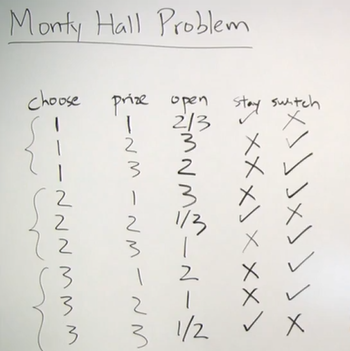 Monty Hall Problem
choose prize open stay switch
1 1 2/3 ✓ ✗
1 2 3 ✗ ✓
1 3 2 ✗ ✓
2 1 3 ✗ ✓
2 2 1/3 ✓ ✗
2 3 1 ✗ ✓
3 1 2 ✗ ✓
3 2 1 ✗ ✓
3 3 1/2 ✓ ✗